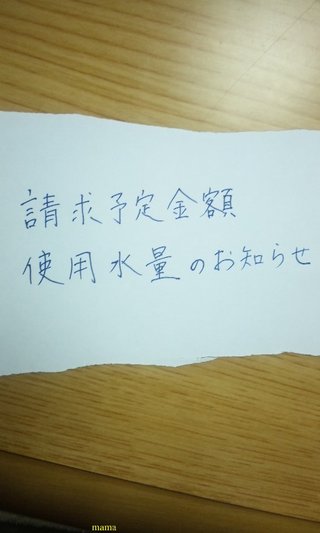 請求予定金額
使用水量のお知らせ
mama